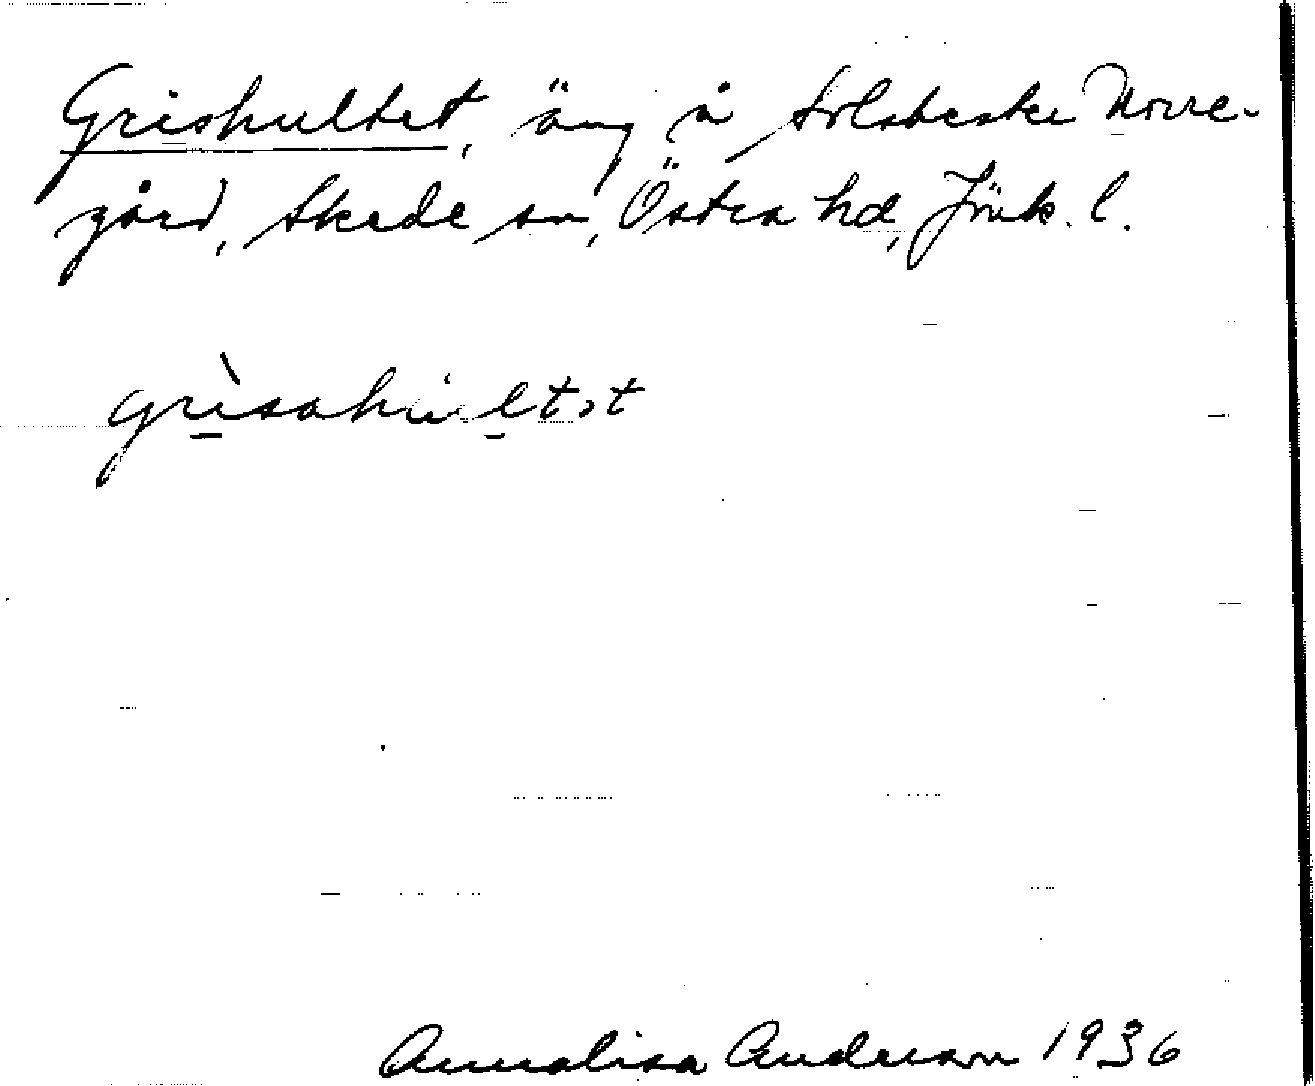 Grishultet, äng å Solsbeske Norre-
gård, Skede sn, Östra hd, Jönk. l.
grisahultət
Annalisa Anderson 1936